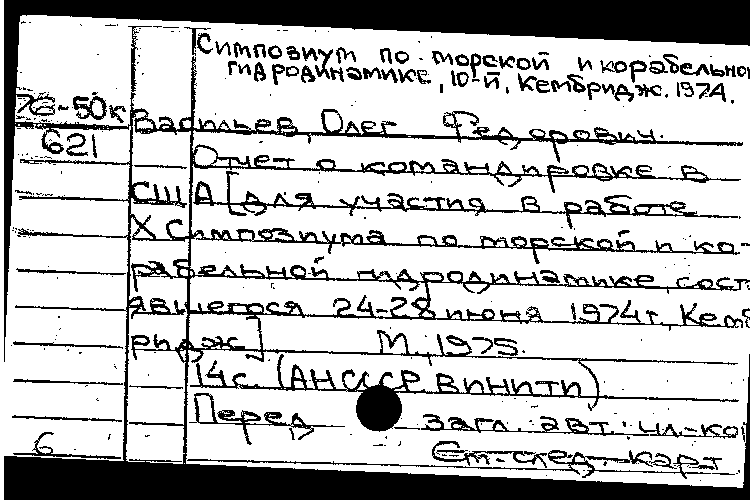 Симпозиум по морской и корабельной
гидродинамике, 10-й, Кембридж. 1974.
76-50к
621
Васильев, Олег Федорович.
Отчет о командировке в
США [для участия в работе
X Симпозиума по морской и ко-
рабельной гидродинамике, сост
явшегося 24-28 июня 1974 г., Кемб
ридж] М., 1975.
14 с. (АН СССР ВИНИТИ)
Перед загл. авт.: чл.-ко
См. след. карт
6